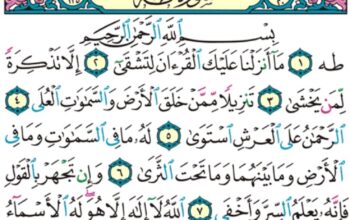 بِسْمِ ٱللَّهِ ٱلرَّحْمَٰنِ ٱلرَّحِيمِ
طه ١ مَآ أَنزَلْنَا عَلَيْكَ ٱلْقُرْءَانَ لِتَشْقَىٰٓ ٢ إِلَّا تَذْكِرَةً
لِّمَن يَخْشَىٰ ٣ تَنزِيلًا مِّمَّنْ خَلَقَ ٱلْأَرْضَ وَٱلسَّمَٰوَٰتِ ٱلْعُلَى ٤
ٱلرَّحْمَٰنُ عَلَى ٱلْعَرْشِ ٱسْتَوَىٰ ٥ لَهُۥ مَا فِى ٱلسَّمَٰوَٰتِ وَمَا فِى
ٱلْأَرْضِ وَمَا بَيْنَهُمَا وَمَا تَحْتَ ٱلثَّرَىٰ ٦ وَإِن تَجْهَرْ بِٱلْقَوْلِ
فَإِنَّهُۥ يَعْلَمُ ٱلسِّرَّ وَأَخْفَى ٧ ٱللَّهُ لَآ إِلَٰهَ إِلَّا هُوَ لَهُ ٱلْأَسْمَآءُ